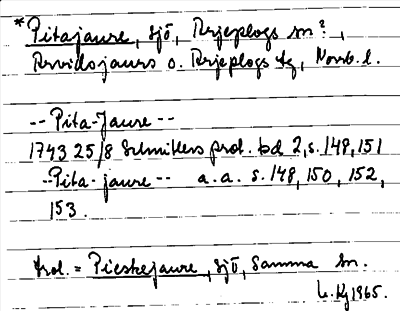 *Pitajaure, sjö, Arjeplogs sn?,
Arvidsjaurs o. Arjeplogs tg, Norrb. l.
--Pita-Jaure--
1743 25/8 Schnitlers prot. bd 2, s. 148, 151
--Pita-jaure-- a.a. s. 148, 150, 152,
153.
trol. = Pieskejaure, sjö, samma sn.
1965.